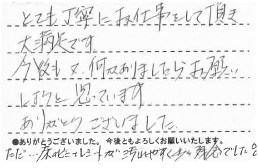 とても丁寧にお仕事をして頂き
大満足です。
今後も又、何かありましたらお願い
しようと思っています
ありがとうございました。
●ありがとうございました。今後ともよろしくお願いいたします。
ただ…床のビニールシートが
残念でした。